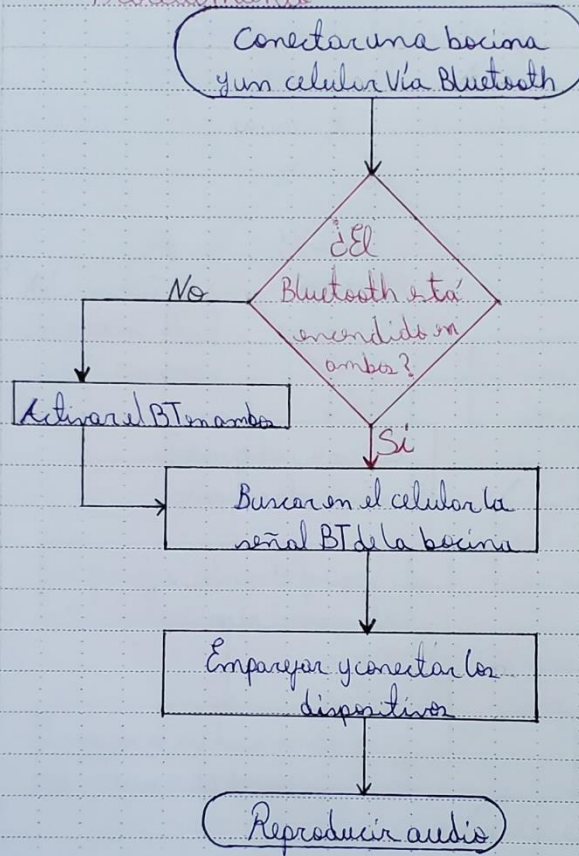 Conectar una bocina
y un celular Vía Bluetooth
¿El
Bluetooth está
encendido en
ambos?
No
Activar el BT en ambos
Sí
Buscar en el celular la
señal BT de la bocina
Emparejar y conectar los
dispositivos
Reproducir audio